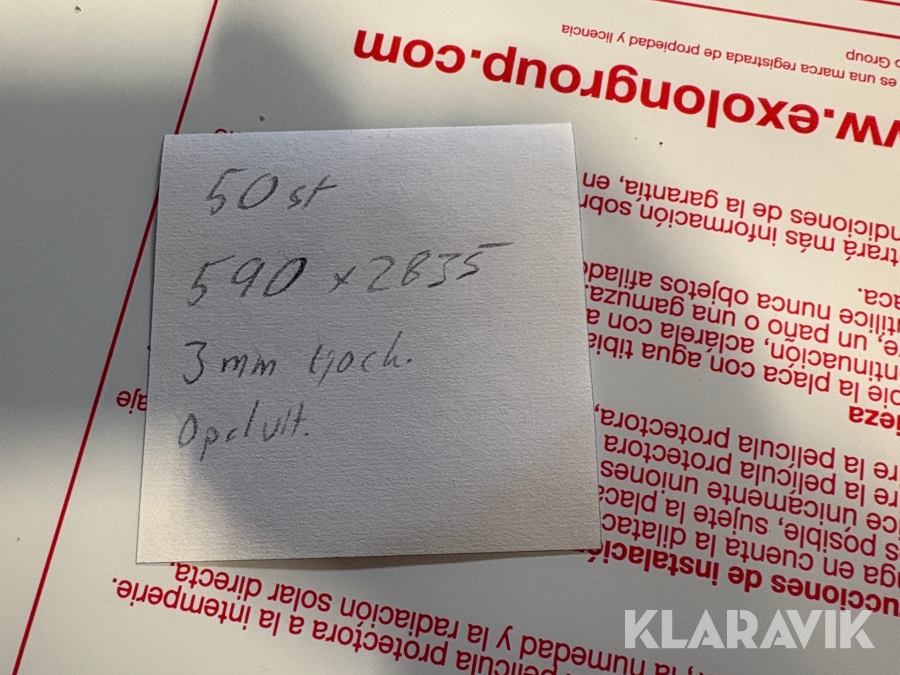 50 st
590 x 2835
3 mm tjock.
Opalvit.
es una marca registrada de propiedad y licencia
o Group
w.exolongroup.com
ndiciones de la garantía, en
trará más información sobr
aca.
utilice nunca objetos afilado
re, un paño o una gamuza.
ontinuación, aclárela con a
pie la placa con agua tibia
ieza
re la película protectora,
re la película protectora
ice únicamente uniones
s posible, sujete la placa
nga en cuenta la dilatac
ucciones de instalació
aje
, la humedad y la radiación solar directa.
película protectora a la intemperie.
KLARAVIK